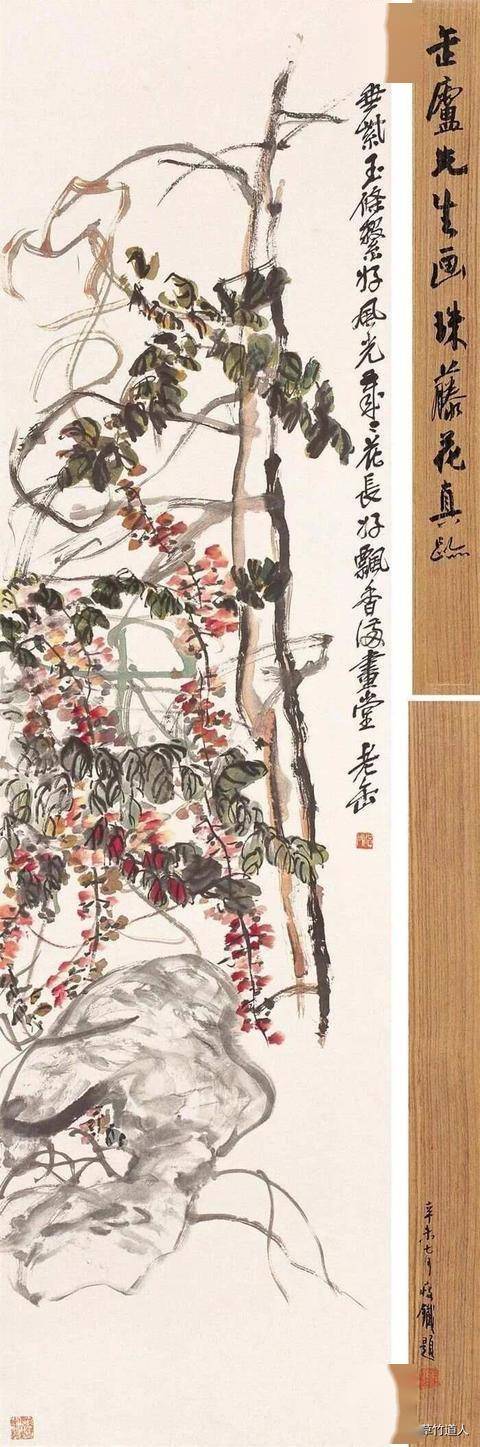 缶廬先生画珠藤花真跡
辛未七月瘦鐵題
垂紫玉條繫好風光歲〻花長好飄香滿畫堂 老缶
草竹道人